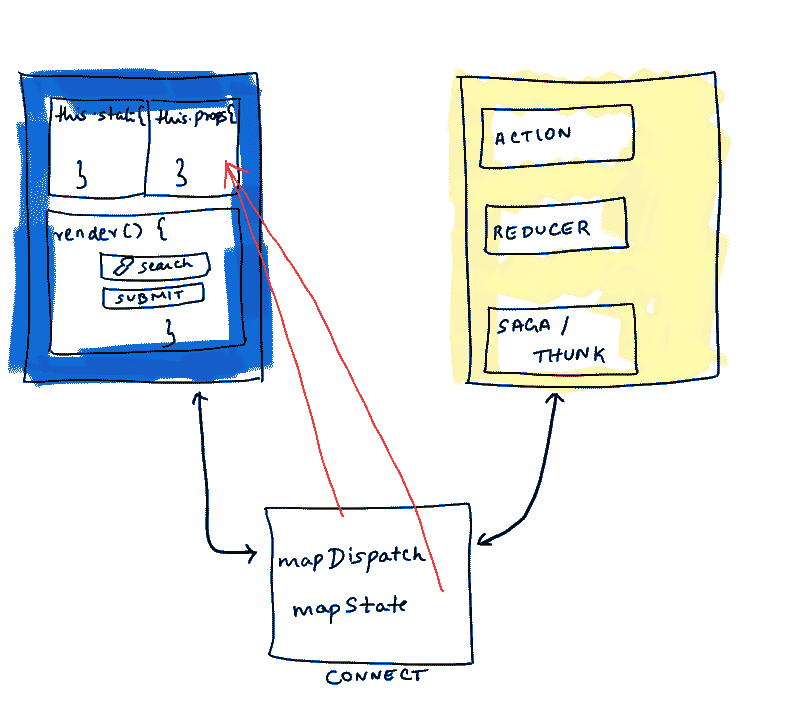 this.state{
}
this.props{
}
render() {
search
SUBMIT
}
ACTION
REDUCER
SAGA /
THUNK
mapDispatch
mapState
CONNECT